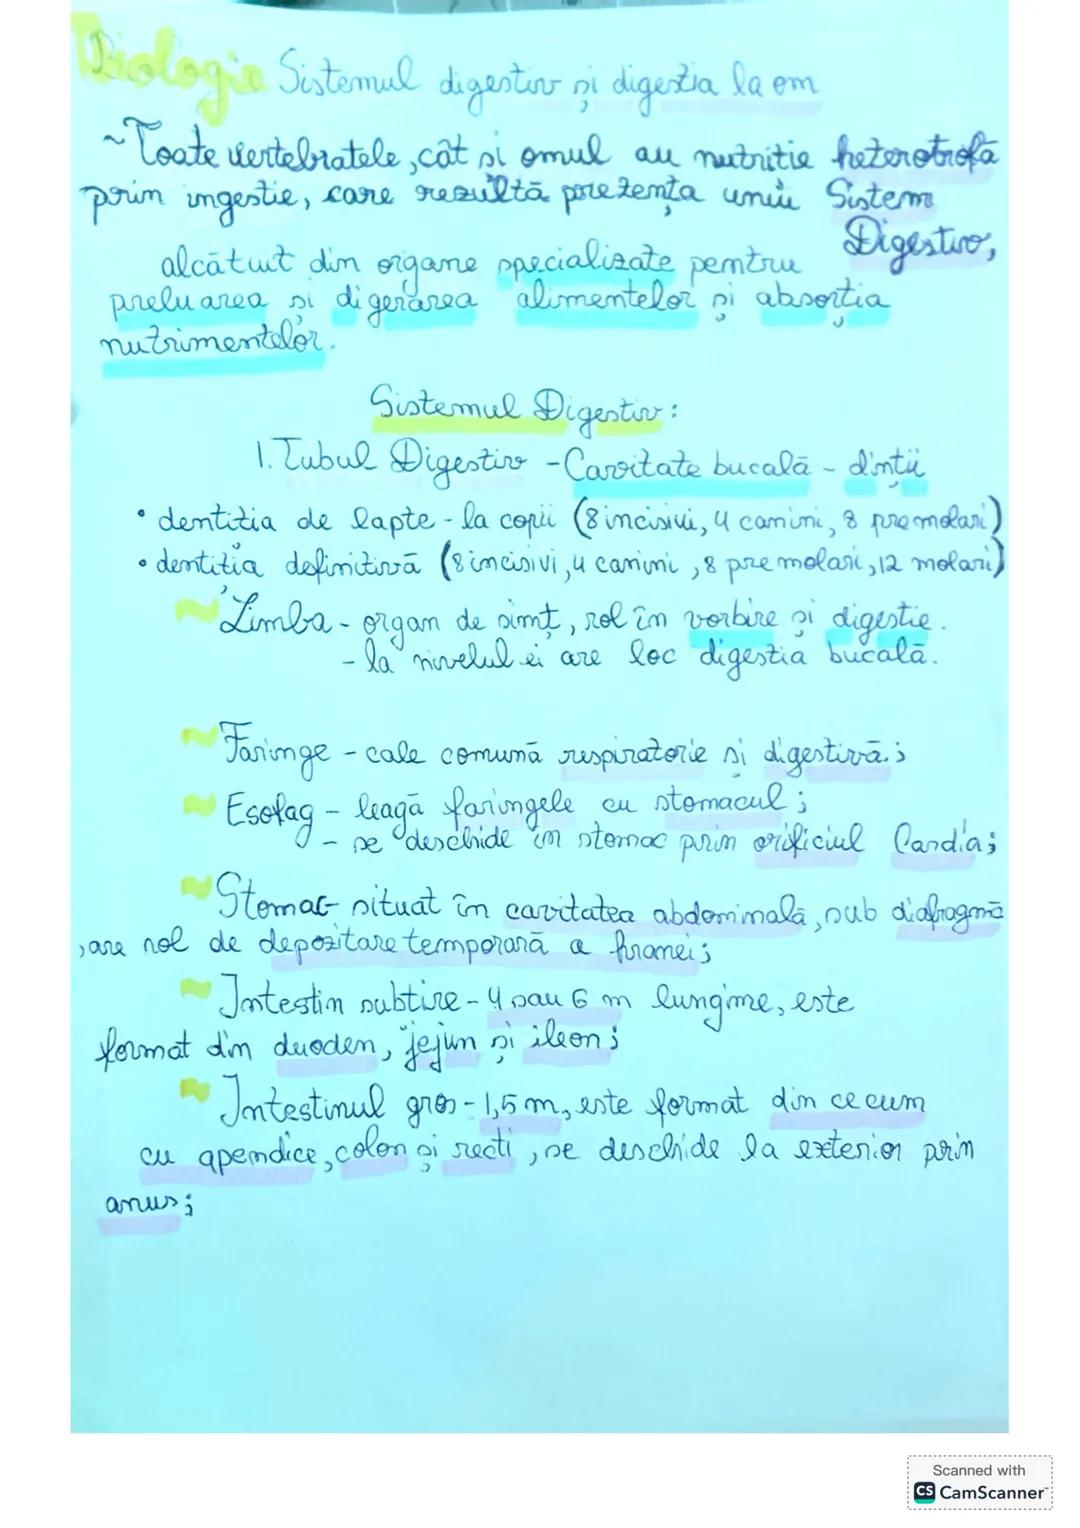 Biologie Sistemul digestiv și digestia la om
~Toate vertebratele, cât și omul au nutritie heterotrofă
prin ingestie, care rezultă prezența unui Sistem
Digestiv,
alcătuit din organe specializate pentru
preluarea și digerarea alimentelor și absorția
nutrimentelor.
Sistemul Digestiv:
1. Tubul Digestiv - Cavitate bucală - dinții
• dentiția de lapte - la copii (8 incisivi, 4 canini, 8 premolari)
• dentiția definitivă (8 incisivi, 4 canini, 8 premolari, 12 molari)
~Limba - organ de simț, rol în vorbire și digestie.
- la nivelul ei are loc digestia bucală.
~Faringe - cale comună respiratorie și digestivă.;
~Esofag - leagă faringele cu stomacul;
- se deschide în stomac prin orificiul Cardia;
~Stomac - situat în cavitatea abdominală, sub diafragmă
, are rol de depozitare temporară a hranei;
~Intestin subtire - 4 sau 6 m lungime, este
format din duoden, jejun și ileon;
~Intestinul gros - 1,5 m, este format din cecum
cu apendice, colon și rect, se deschide la exterior prin
anus;
Scanned with
CS CamScanner